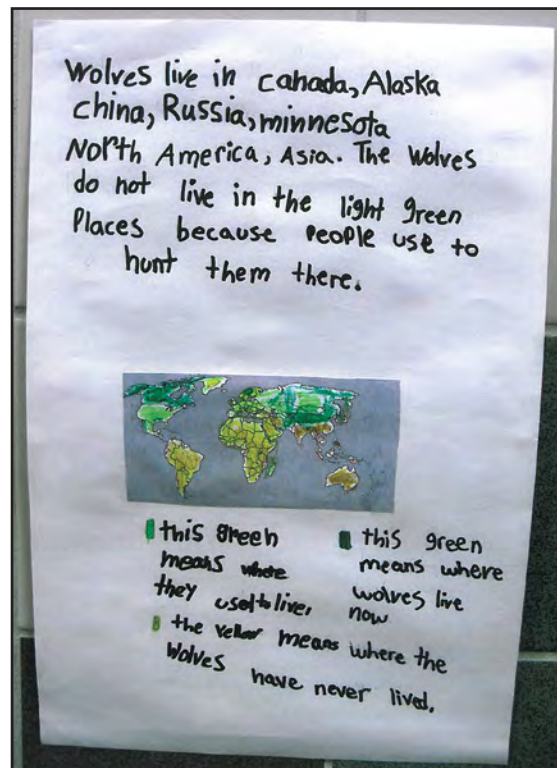 Wolves live in Canada, Alaska
China, Russia, minnesota
North America, Asia. The Wolves
do not live in the light green
Places because People use to
hunt them there.
this green
means where
they used to live.
this green
means where
wolves live
now
the yellow means where the
Wolves have never lived.